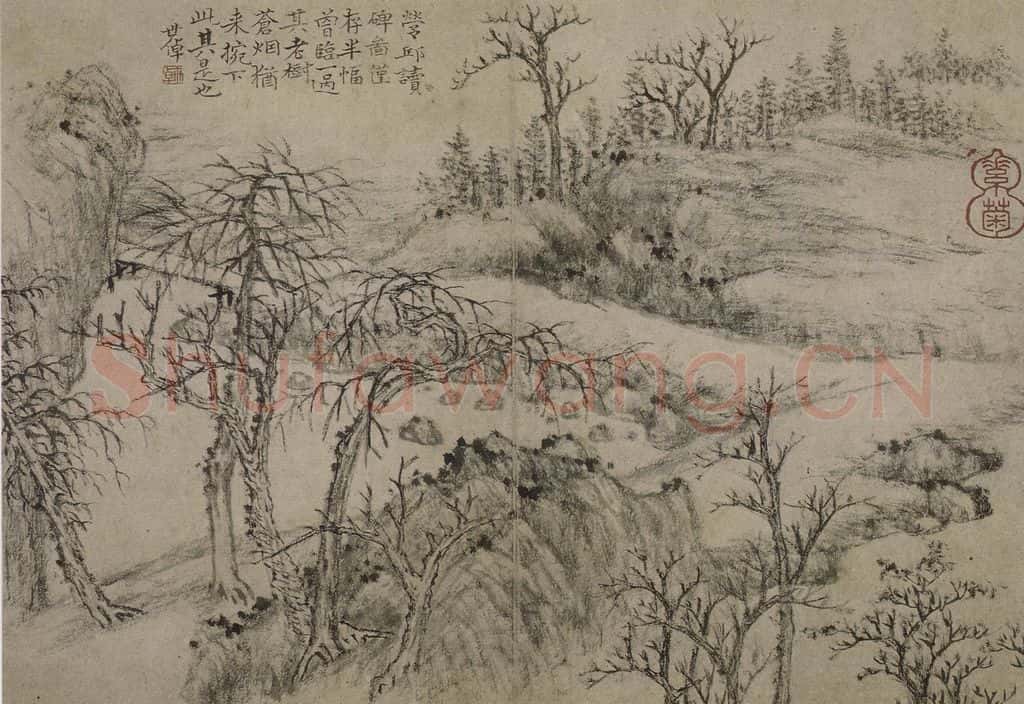 營邱讀
碑啚僅
存半幅
曾臨一過
其老樹
蒼烟猶
来捥下
此其是也
世倬
Shufawang.CN